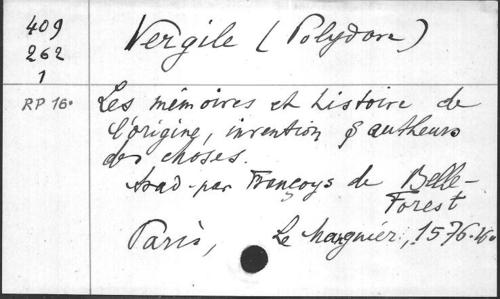 409
262
1
RP 16°
Vergile (Polydore)
Les mémoires et histoire de
l'origine, invention & autheurs
des choses.
trad. par Françoys de Belle-
Forest
Paris, Le Mangnier, 1576. 16°